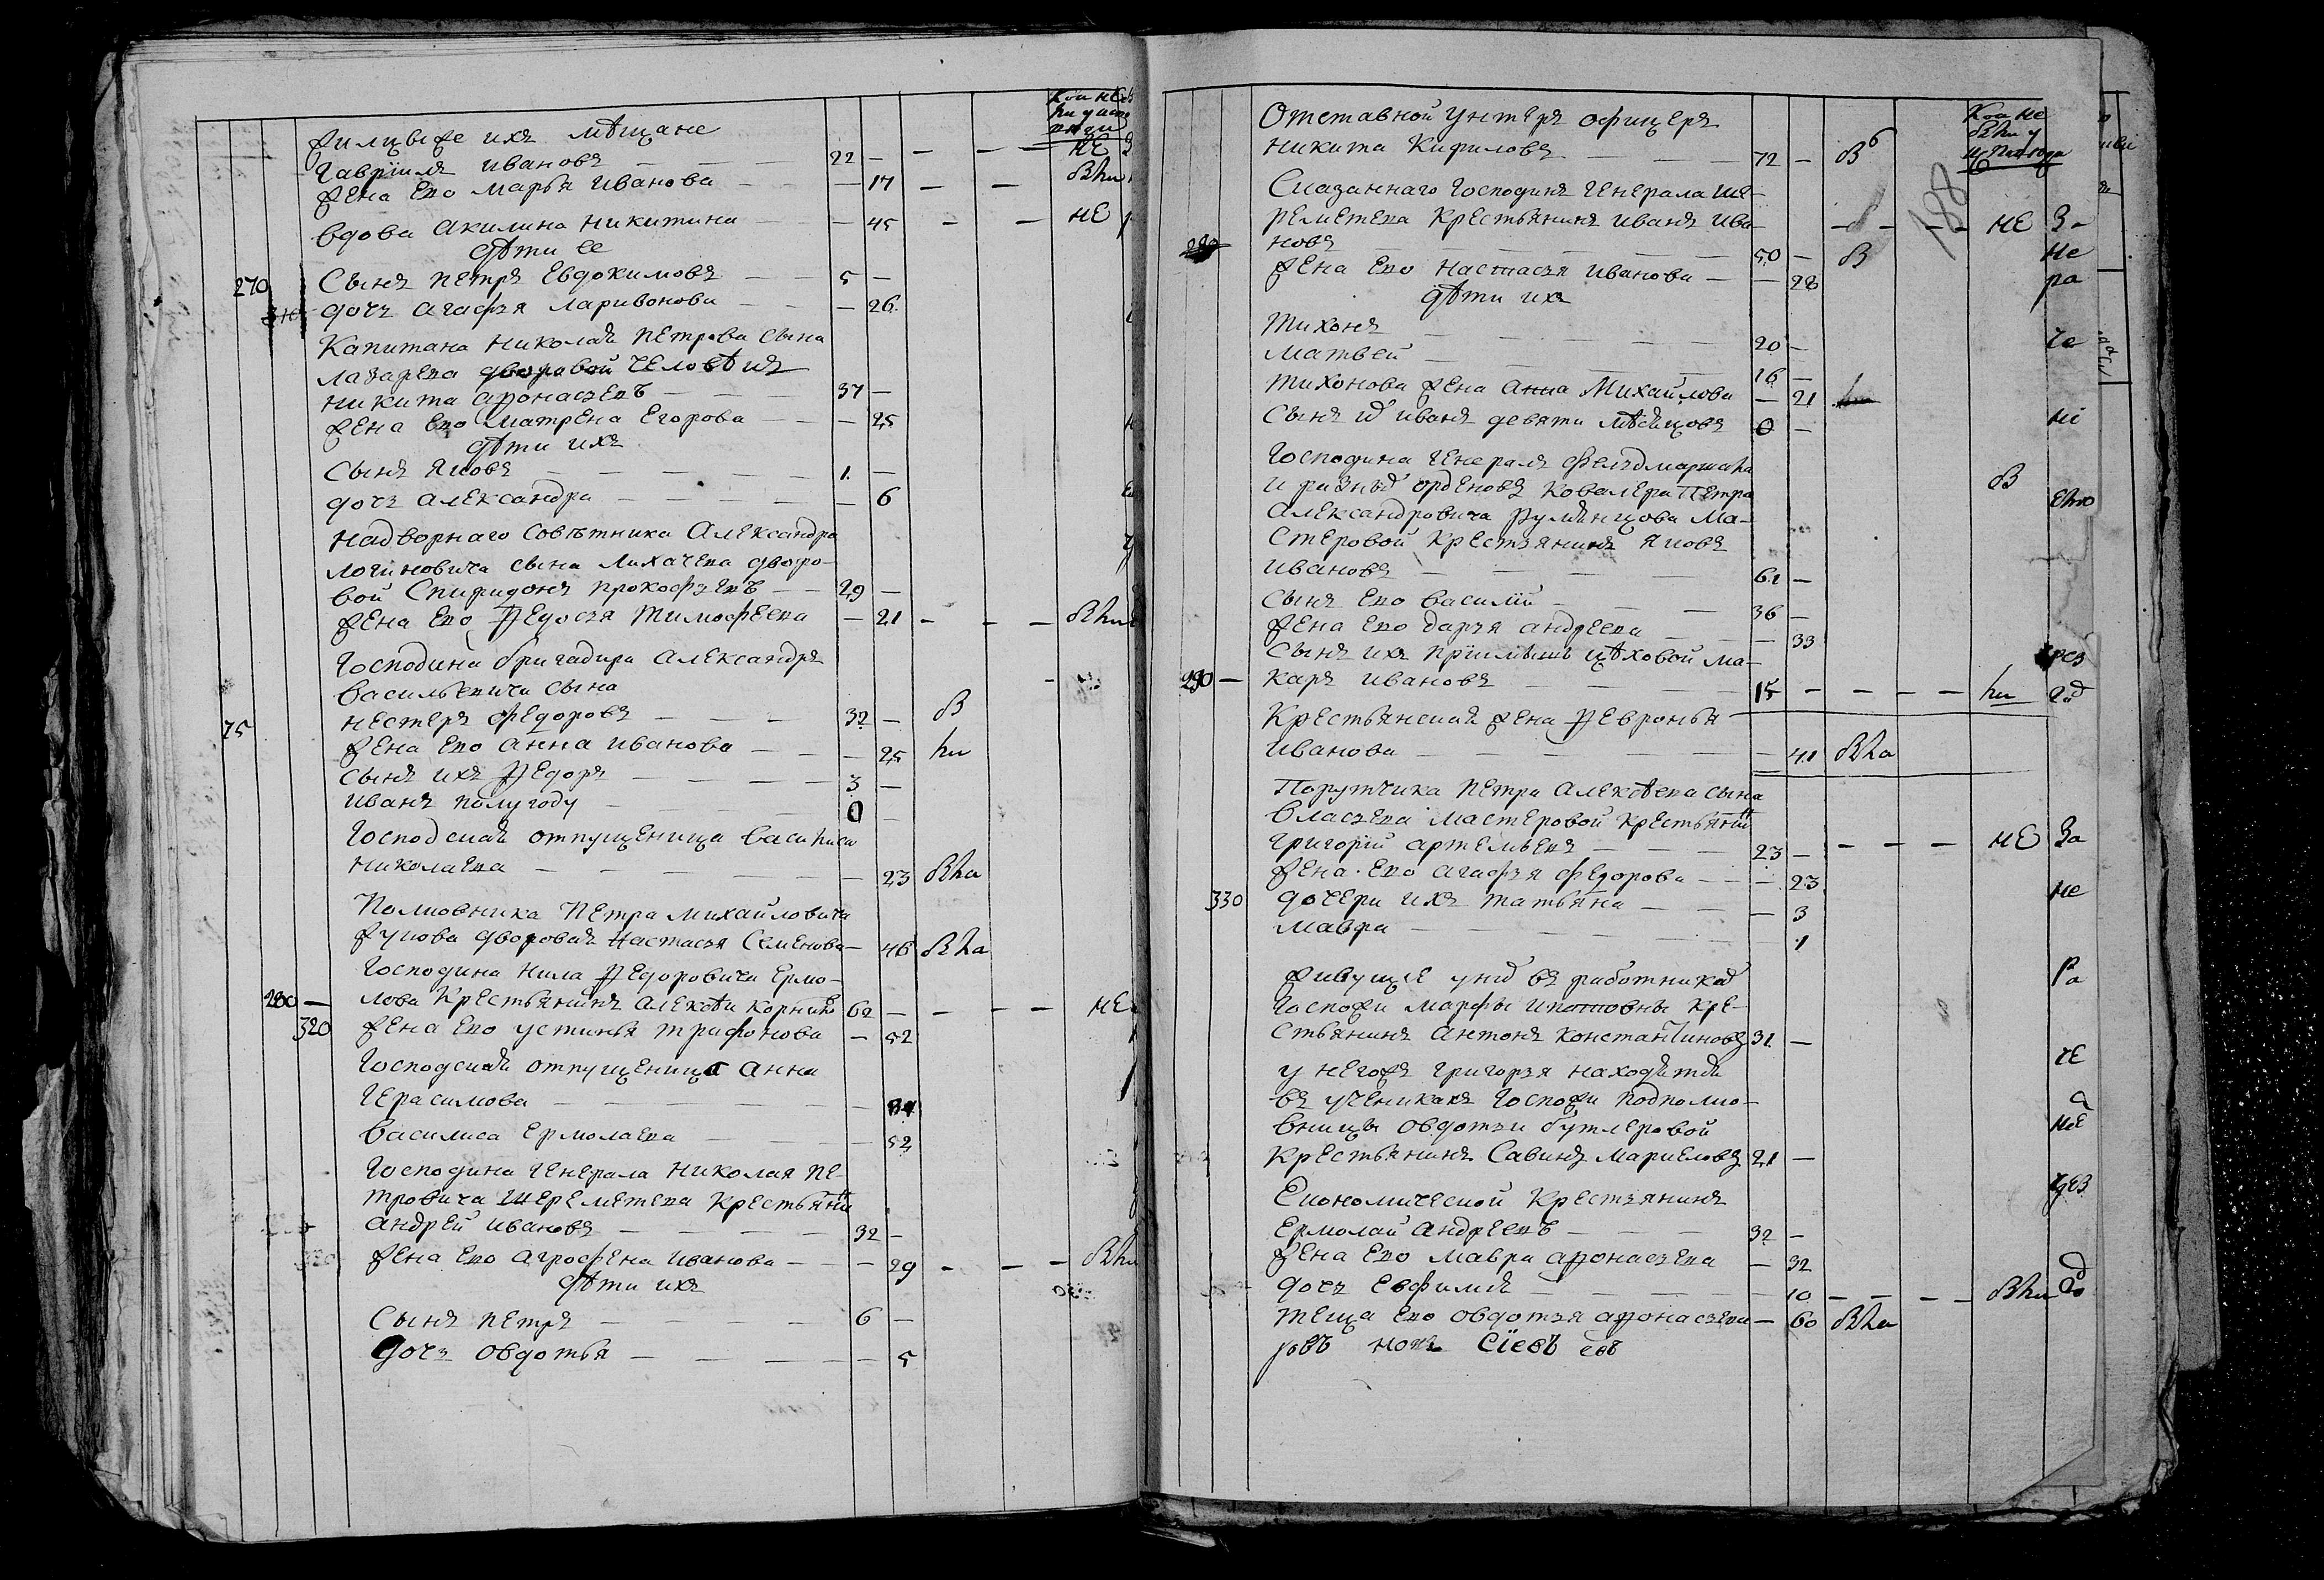 270
310
275
280 —
320
жилцыже ихъ мѣщане
Гаврiилъ Ивановъ — — — 22 — — — НЕ
жена Ево Марья Иванова — — 17 — — Вhи
вдова Акилина Никитина — 45 — — НЕ
дѣти ее
Сынъ Петръ Евдокимовъ — — 5 —
дочь Агафья Ларивонова — — 26
Капитана Николая Петрова сына
Лазарева дворовой человѣкъ
Никита Афонасьевъ — — 37 —
жена Ево Матрена Егорова — — 25
дѣти ихъ
Сынъ Яковъ — — — — 1 —
дочь Александра — — — — 6
Надворнаго Совѣтника Александра
Логиновича сына Лихачева дворо-
вой Спиридонъ Прокофьевъ — — 29 —
жена Ево Федосья Тимофеева — 21 — — — Вhи
Господина бригадира Александра
Васильевича сына
Нестеръ Федоровъ — — — 32 — В
жена Ево Анна Иванова — — — 25 hи
Сынъ ихъ Федоръ — — — — 3 —
Иванъ полугоду — — — 0 —
Господская отпущеница Василиса
Николаева — — — — — 23 Вhа
Полковника Петра Михайловича
Жукова дворовая Настасья Семенова — 46 Вhа
Господина Нила Федоровича Ермо-
лова Крестьянинъ Алексѣй Корнило 62 — — — — НЕ
жена Ево Устинья Трифонова — 52
Господская отпущеница Анна
Герасимова — — — — —
Василиса Ермолаева — — — 52
Господина Генерала Николая Пе-
тровича Шереметева Крестьяни
Андрей Ивановъ — — — — 32 —
жена Ево Агрофена Иванова — — — 29 — — — Вhи
дѣти ихъ
Сынъ Петръ — — — — 6 —
Дочь Овдотья — — — — — 5
188
290 —
330
Отставной Унтеръ офицеръ
Никита Кириловъ — — — 72 — В
Сказаннаго Господина Генерала Ше-
реметева Крестьянинъ Иванъ Ива- — — — НЕ
новъ — — — — — 50 — В
жена Ево Настасья Иванова — — 28
дѣти ихъ
Тихонъ — — — — — 20 —
Матвей — — — — — 16 —
Тихонова жена Анна Михайлова — 21
Сынъ их Иванъ девяти мѣсяцовъ 0 —
Господина Генерала Фелдмаршала
и разных орденовъ Ковалера Петра
Александровича Румянцова Ма-
стеровой Крестьянинъ Яковъ
Ивановъ — — — — 61 —
Сынъ Ево Василiй — — — 36 —
жена Ево Дарья Андреева — — 33
Сынъ ихъ прiимышъ цѣховой Ма-
каръ Ивановъ — — — — 15 — — — — hи
Крестьянская жена Февронья —
Иванова — — — — — 41 Вhа
Порутчика Петра Алексѣева сына
Власьева мастеровой Крестьяни
Григорiй Артемьевъ — — — 23 — — — — НЕ
жена Ево Агафья Федорова — — — 23
дочери ихъ Татьяна — — — 3
Мавра — — — — — 1
живущiе у них въ работниках
Госпожи Марфы Ипатовны Кре-
стьянинъ Антонъ Константиновъ 31 —
у негожъ Григорья находятся
въ ученикахъ Госпожи подполко-
вницы Овдотьи Бутлеровой
Крестьянинъ Савинъ Маркеловъ 21 —
Економической Крестьянинъ
Ермолай Андреевъ — — — 32 —
жена Ево Мавра Афонасьева — 32
дочь Евфимiя — — — — 10 — — — — Вhи
теща Ево Овдотья Афонасьева — 60 Вhа